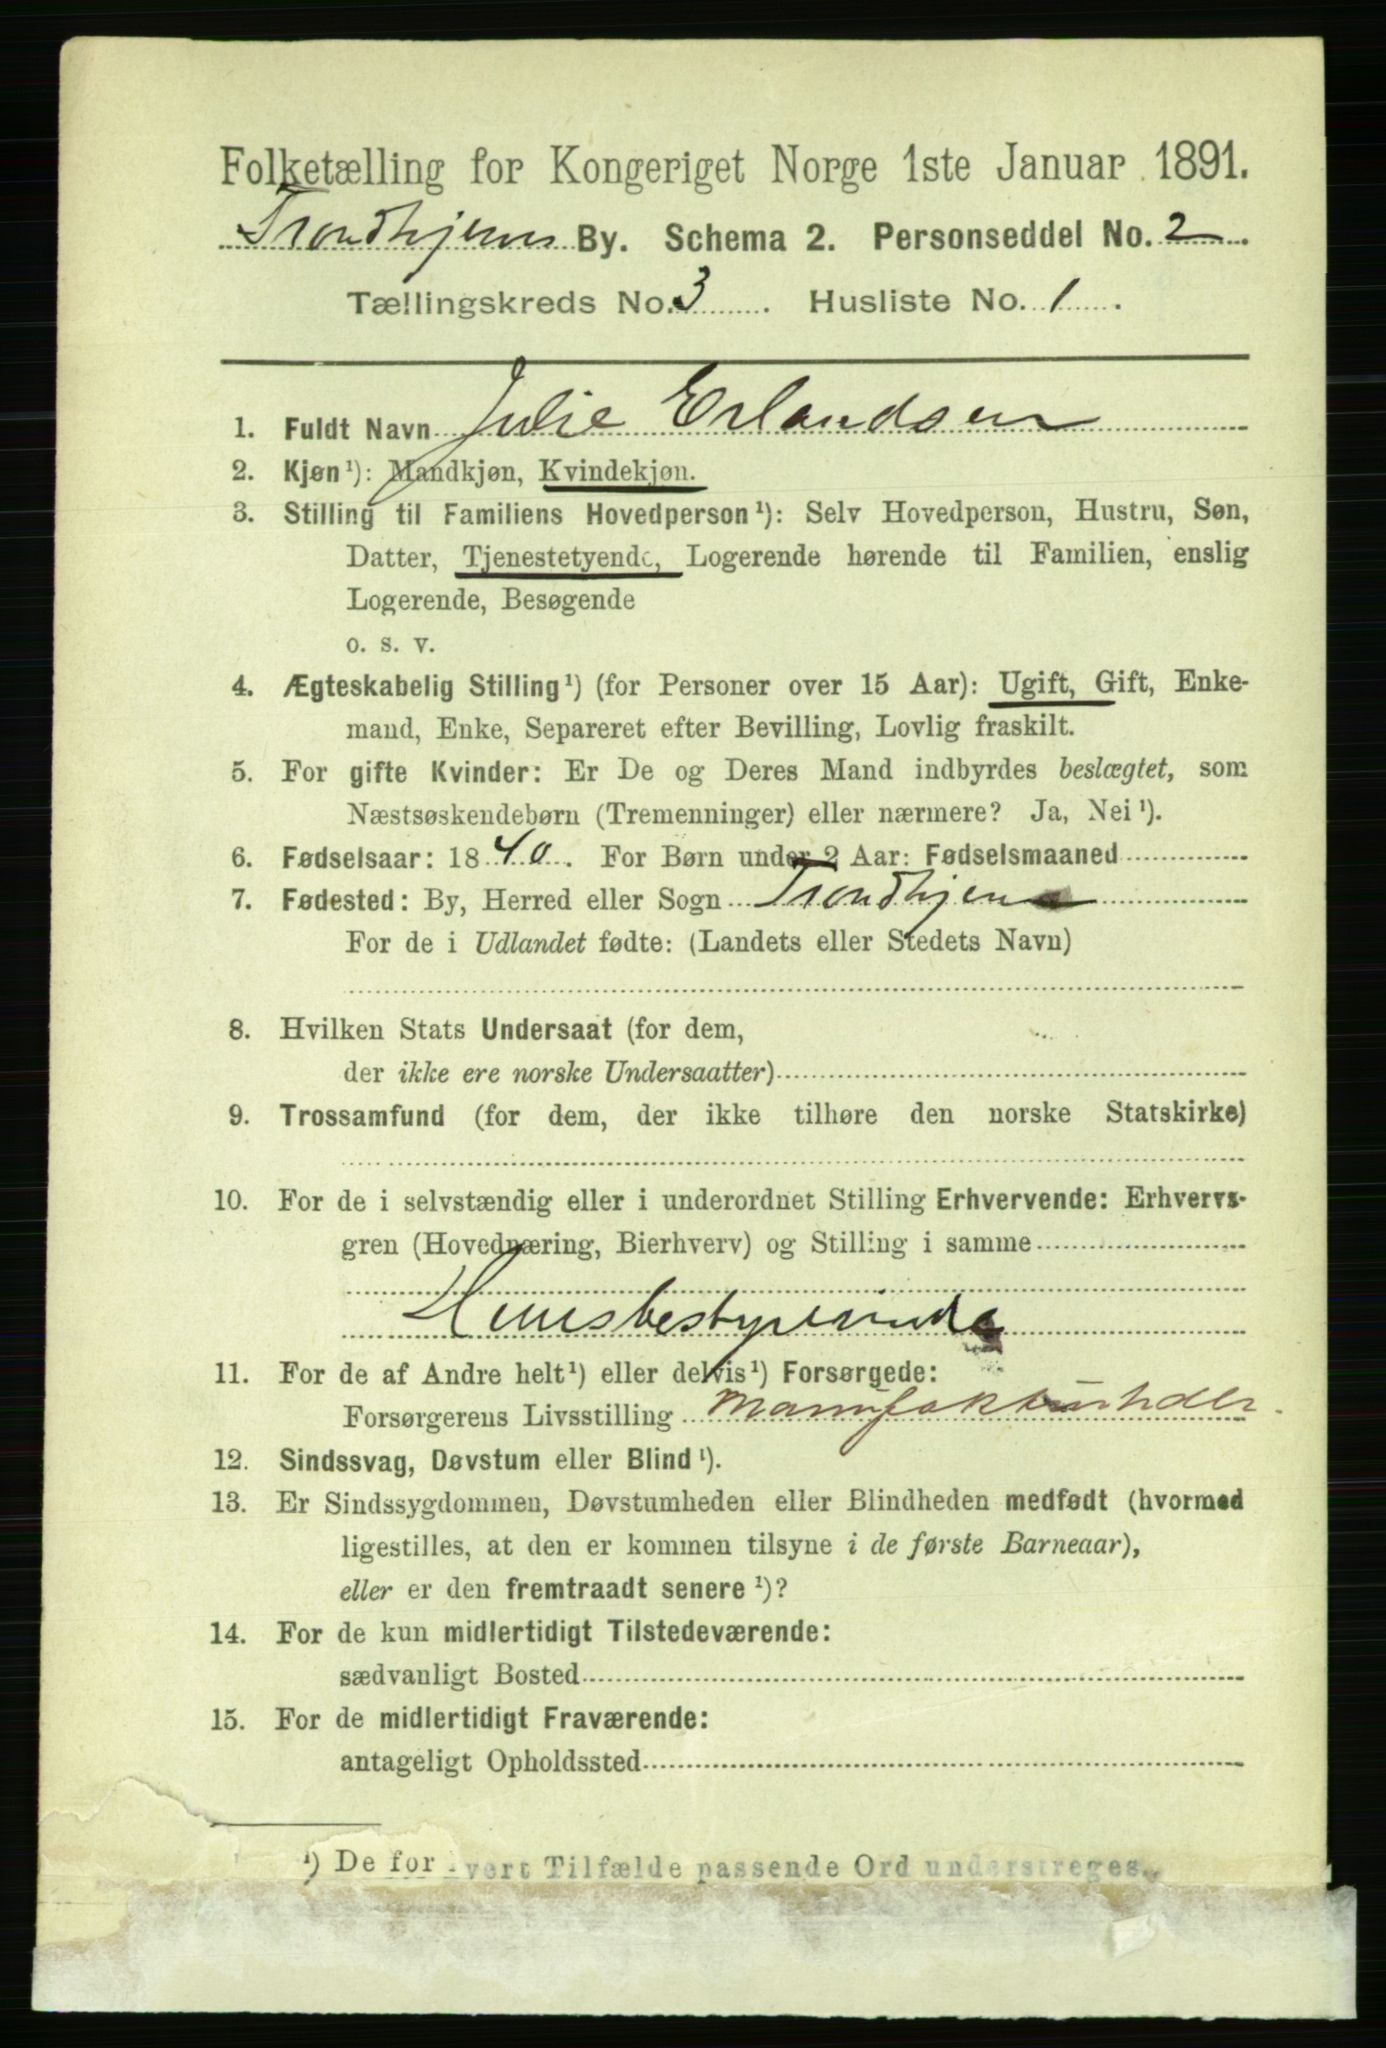 Folketælling for Kongeriget Norge 1ste Januar 1891.
Trondhjems By. Schema 2. Personseddel No. 2.
Tællingskreds No. 3. Husliste No. 1.
1. Fuldt Navn Julie Erlandsen
2. Kjøn¹): Mandkjøn, Kvindekjøn.
3. Stilling til Familiens Hovedperson¹): Selv Hovedperson, Hustru, Søn,
Datter, Tjenestetyende, Logerende hørende til Familien, enslig
Logerende, Besøgende
o. s. v.
4. Ægteskabelig Stilling¹) (for Personer over 15 Aar): Ugift, Gift, Enke-
mand, Enke, Separeret efter Bevilling, Lovlig fraskilt.
5. For gifte Kvinder: Er De og Deres Mand indbyrdes beslægtet, som
Næstsøskendebørn (Tremenninger) eller nærmere? Ja, Nei¹).
6. Fødselsaar: 1840. For Børn under 2 Aar: Fødselsmaaned
7. Fødested: By, Herred eller Sogn Trondhjem
For de i Udlandet fødte: (Landets eller Stedets Navn)
8. Hvilken Stats Undersaat (for dem,
der ikke ere norske Undersaatter)
9. Trossamfund (for dem, der ikke tilhøre den norske Statskirke)
10. For de i selvstændig eller i underordnet Stilling Erhvervende: Erhvervs-
gren (Hovednæring, Bierhverv) og Stilling i samme
Huusbestyrerinde
11. For de af Andre helt¹) eller delvis¹) Forsørgede:
Forsørgerens Livsstilling Manufakturhdlr.
12. Sindssvag, Døvstum eller Blind¹).
13. Er Sindssygdommen, Døvstumheden eller Blindheden medfødt (hvormed
ligestilles, at den er kommen tilsyne i de første Barneaar),
eller er den fremtraadt senere¹)?
14. For de kun midlertidigt Tilstedeværende:
sædvanligt Bosted
15. For de midlertidigt Fraværende:
antageligt Opholdssted
¹) De for hvert Tilfælde passende Ord understreges.